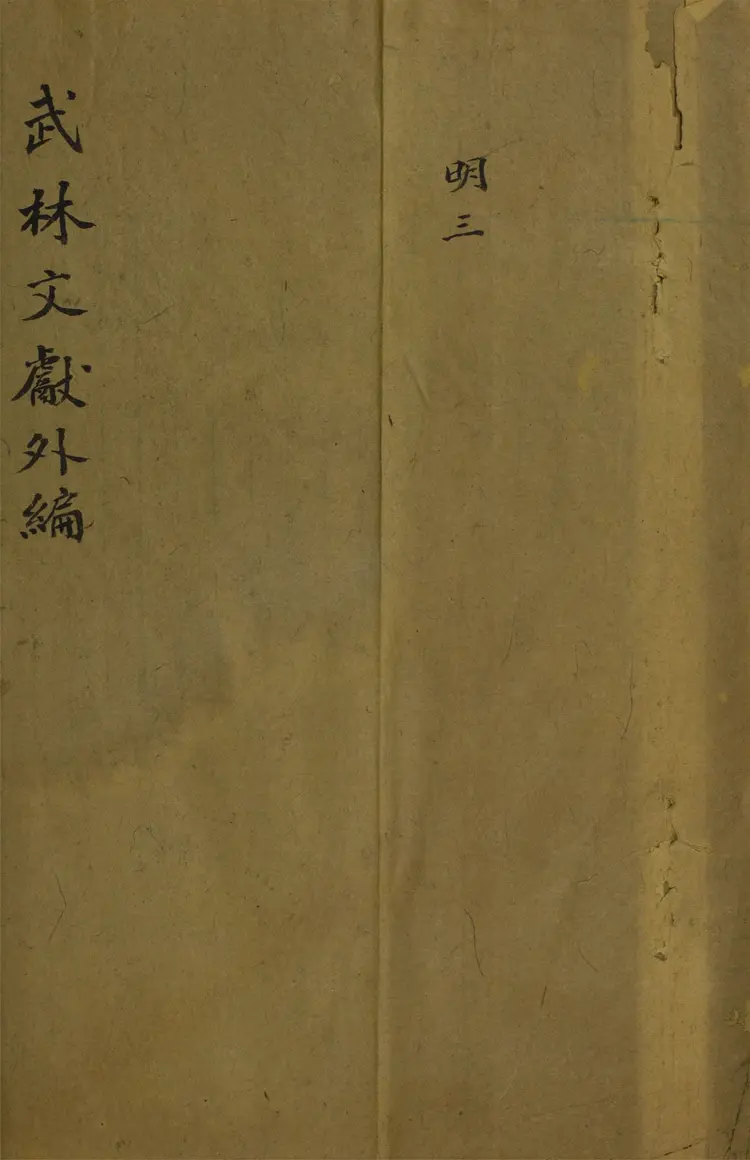 明三
武林文獻外編